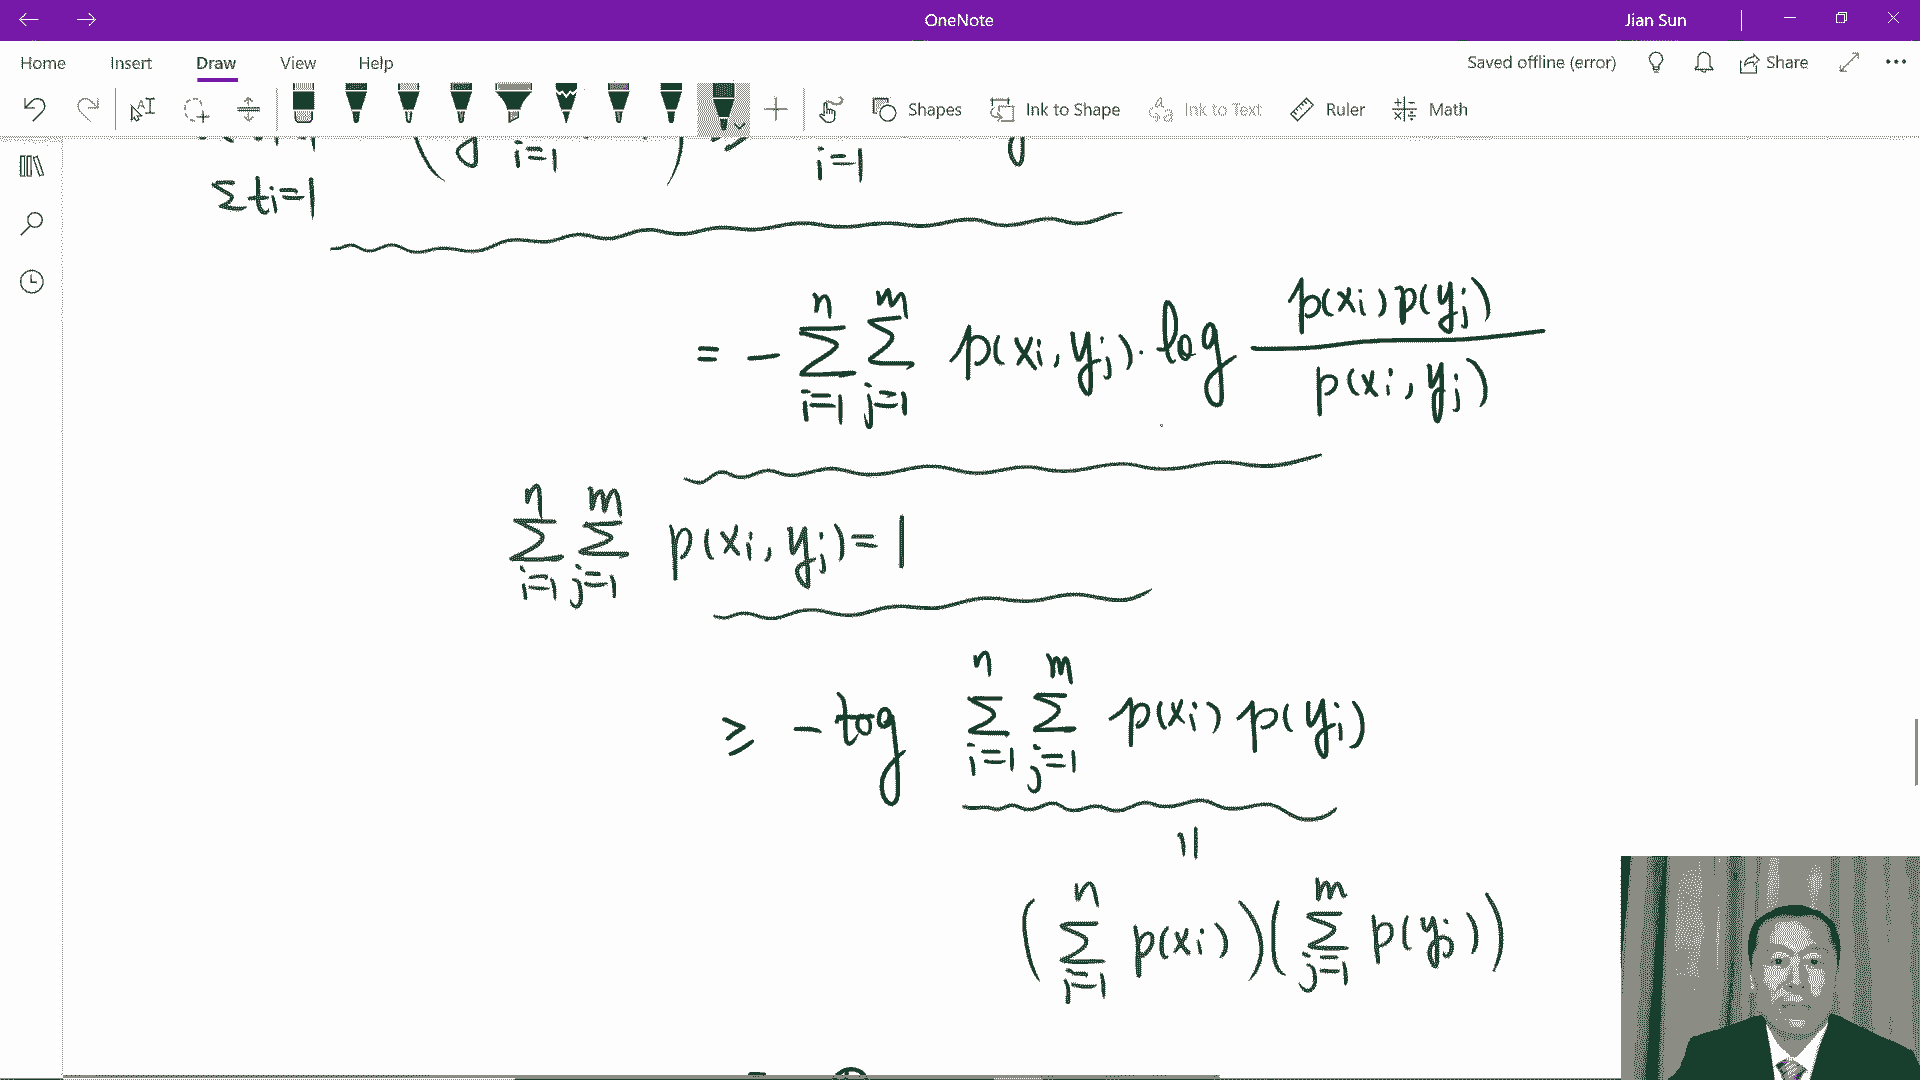 OneNote
Jian Sun
Home Insert Draw View Help
Saved offline (error) Share
Shapes Ink to Shape Ink to Text Ruler Math
i=1 i=1
Σti=1
= - Σ_{i=1}^{n} Σ_{j=1}^{m} p(xi, yj) · log p(xi) p(yj) / p(xi, yj)
Σ_{i=1}^{n} Σ_{j=1}^{m} p(xi, yj) = 1
≥ - log Σ_{i=1}^{n} Σ_{j=1}^{m} p(xi) p(yj)
=
(Σ_{i=1}^{n} p(xi)) (Σ_{j=1}^{m} p(yj))